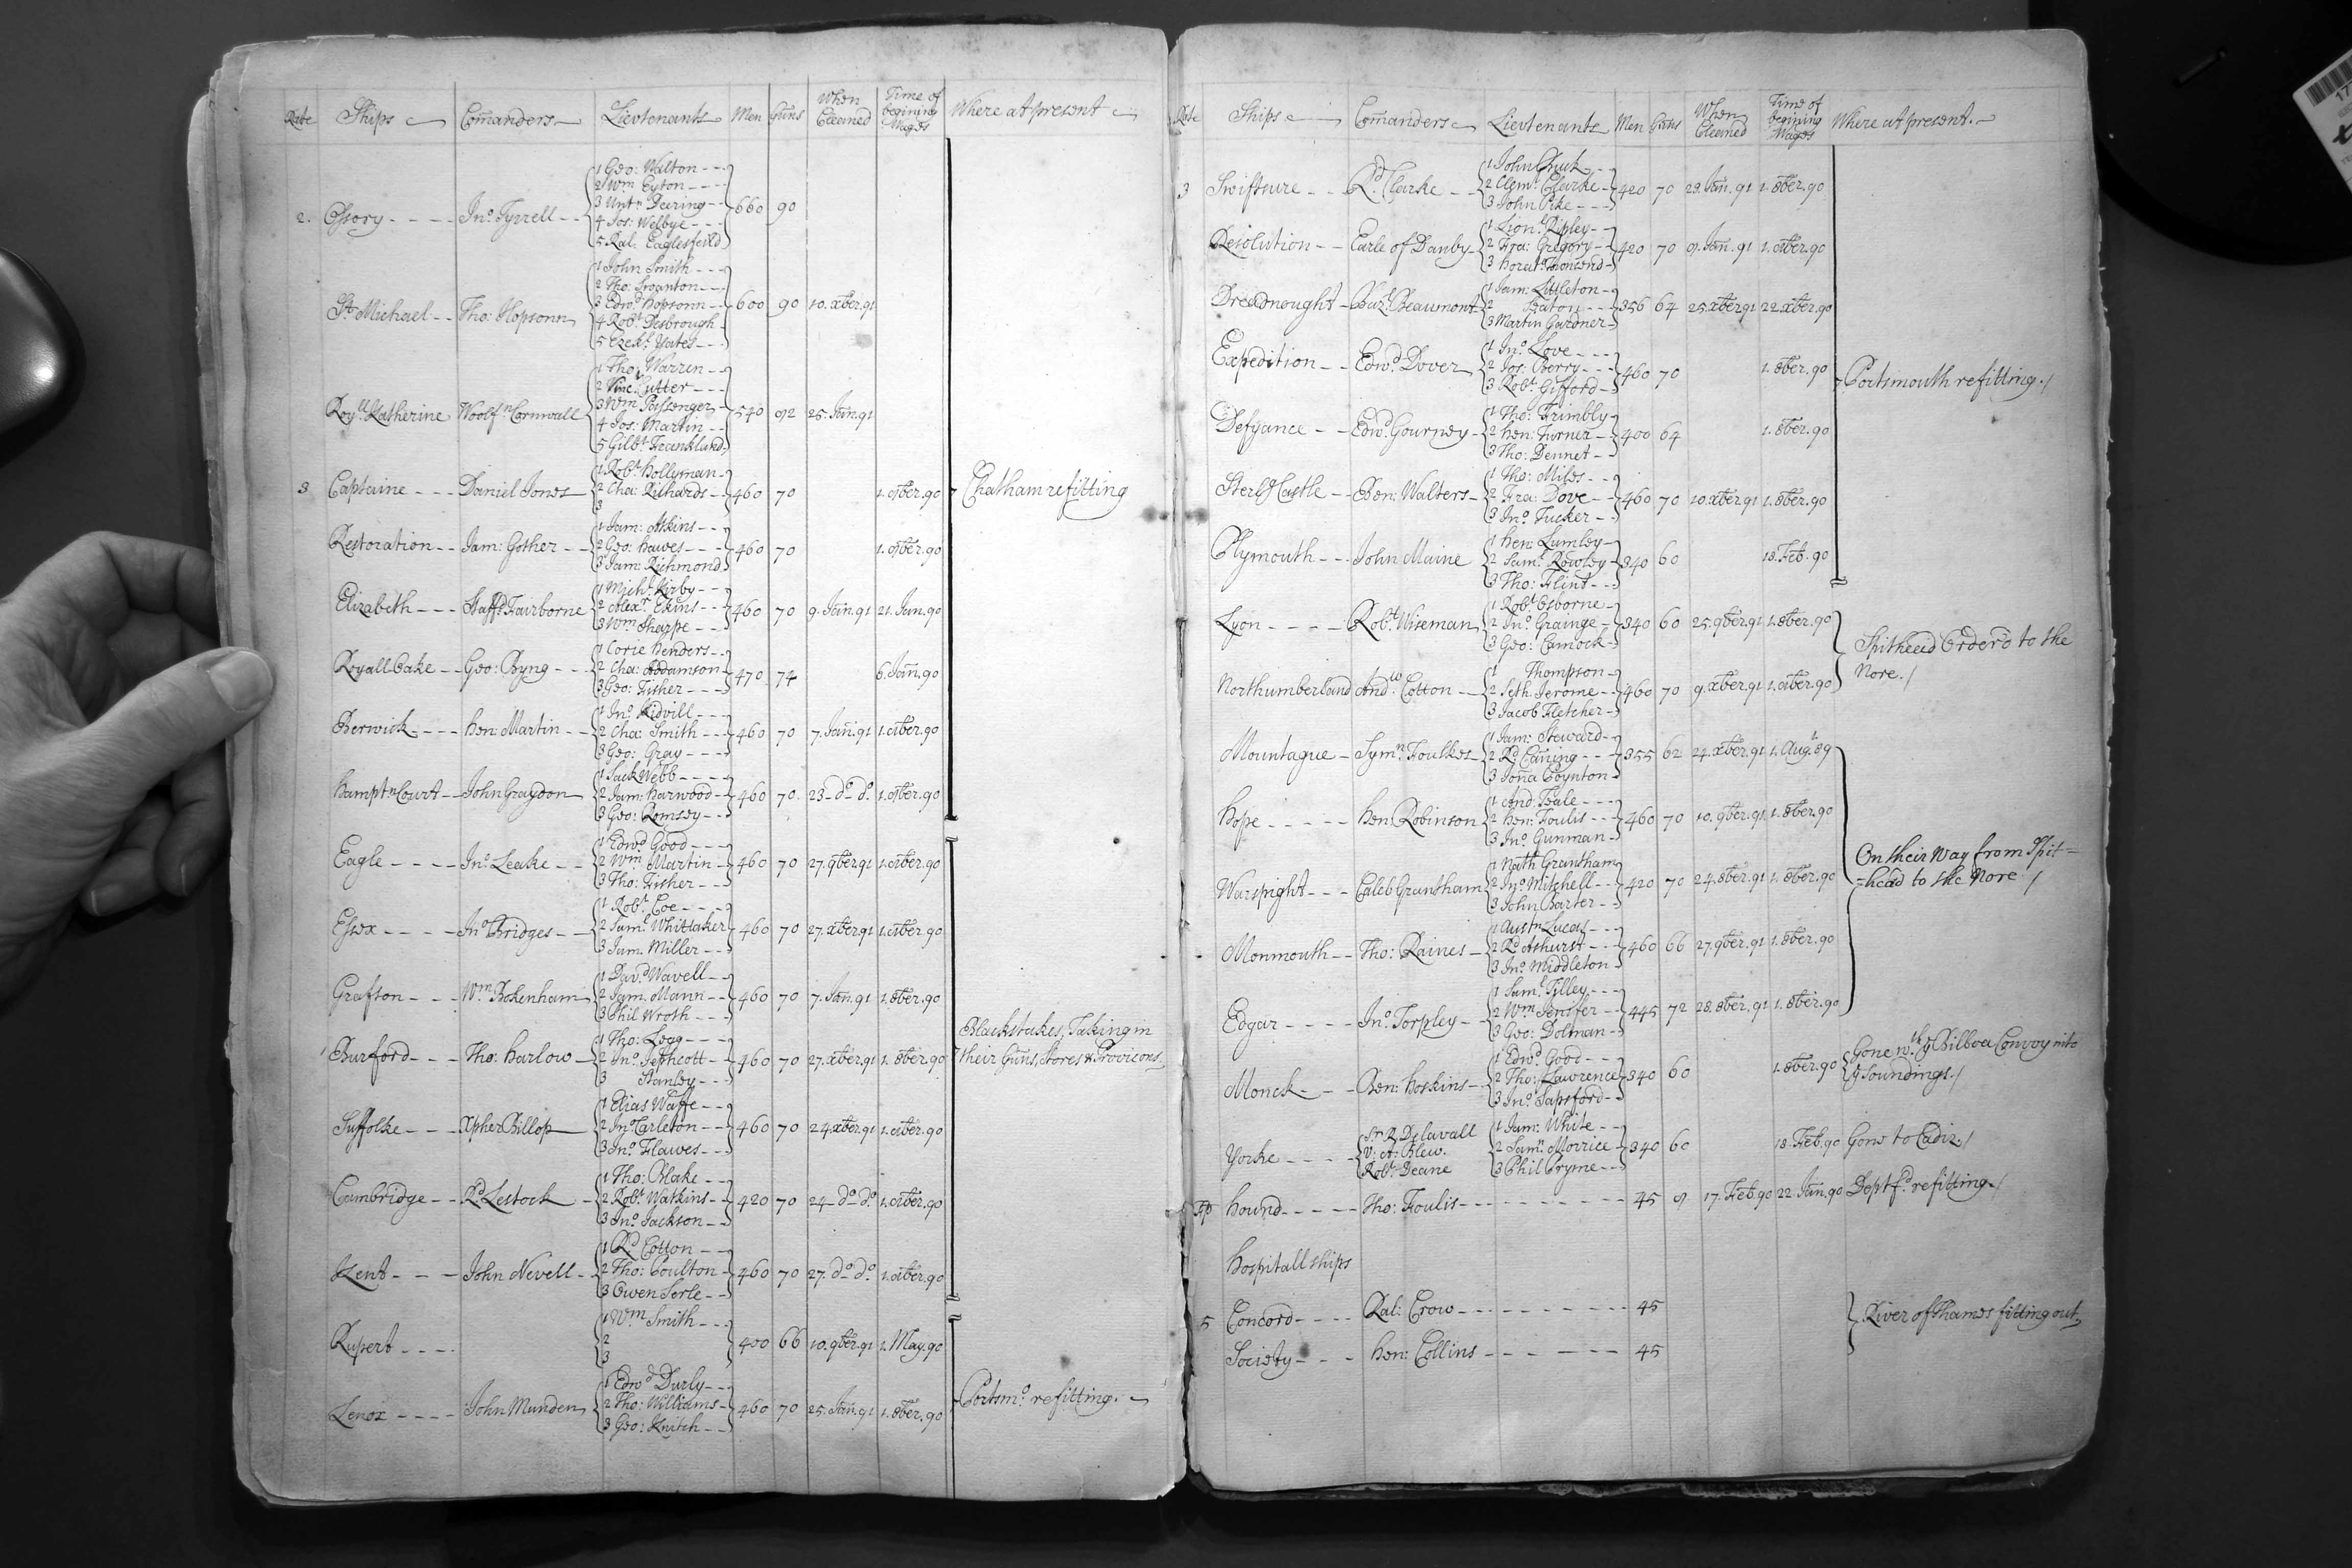 Rate Ships Comanders Lievtenants Men Guns When Cleaned Time of begining Wages Where at present
1 Geo: Walton
2 Wm Eyton
3 Untn Deering
2. Ossory Jno. Tyrrell 660 90
4 Jos: Welbye
5 Ral: Eaglesfeild
1 John Smith
2 Tho: Swanton
3 Edwd Hopsonn
St. Michael Tho: Hopsonn 600 90 10. xber. 91
4 Robt Desbrough
5 Ezekl: Yates
1 Tho: Warren
2 Vinc: Cutter
3 Wm Passenger
Royll: Katherine Woolfn Cornwall 540 92 25. Jan. 91
4 Jos: Martin
5 Gilbt Frankland
1 Robt Hollyman
3 Captaine Daniel Jones 2 Cha: Richards 460 70 1. 90 Chatham refitting
3
1 Jam: Atkins
Restoration Jam: Gother 2 Geo: Hawes 460 70 1. 90
3 Jam: Richmond
1 Michl. Kirby
Elizabeth Staffd Fairborne 2 Alexr. Ekins 460 70 9. Jan. 91 21. Jan. 90
3 Wm Sharpe
1 Corie Henders
Royall Oake Geo: Byng 2 Cha: Addamson 470 74 6. Jan. 90
3 Geo: Fisher
1 Jno. Kidvill
Berwick Hen: Martin 2 Cha: Smith 460 70 7. Jan. 91 1. 8ber. 90
3 Geo: Gray
1 Jack Webb
Hamptn Court John Graydon 2 Jam: Harwood 460 70. 23 do. do. 1. 90
3 Geo: Romsey
1 Edwd Good
Eagle Jno. Leake 2 Wm Martin 460 70 27. 9ber 91 1. 8ber. 90
3 Tho: Fisher
1 Robt. Coe
Essex Jno Bridges 2 Saml Whittaker 460 70 27. xber. 91 1. 8ber. 90
3 Jam. Miller
1 Davd Wavell
Grafton Wm Bokenham 2 Jam. Mann 460 70 7. Jan. 91 1. 8ber. 90
3 Phil Wroth
1 Tho: Legg
Burford Tho: Harlow 2 Jno. Jephcott 460 70 27. xber. 91 1. 8ber. 90 Blackstakes, Taking in
3 Stanley their Guns, Stores & Provicons
1 Elias Waffe
Suffolke Xpher Billop 2 Jno. Carleton 460 70 24. xber. 91 1. 8ber. 90
3 Jno. Flawes
1 Tho: Blake
Cambridge Rd Lestock 2 Robt Watkins 420 70 24 do do. 1. 8ber. 90
3 Jno. Jackson
1 Rd Cotton
Kent John Nevell 2 Tho: Coulton 460 70 27. do do. 1. 8ber. 90
3 Owen Serle
1 Wm Smith
Rupert 2 400 66 10. 9ber. 91 1. May. 90
3
1 Edwd Durly
Lenox John Munden 2 Tho: Williams 460 70 25. Jan. 91 1. 8ber. 90 Portsmo. refitting.
3 Geo: Knitch
Rate Ships Comanders Lievtenants Men Guns When Cleaned Time of begining Wages Where at present.
1 John Chuck
3 Swiftsure Rd. Clarke 2 Clemt. Clarke 420 70 29. Jan. 91 1. 8ber. 90
3 John Pike
1 Lionl. Ripley
Resolution Earle of Danby 2 Fra: Gregory 420 70 9. Jan. 91 1. 8ber. 90
3 Horato. Townsend
1 Jam: Littleton
Dreadnought Bazl. Beaumont 2 Eaton 356 64 25. xber 91 22. xber. 90
3 Martin Gardner
1 Jno. Love
Expedition Edwd. Dover 2 Jos: Berry 460 70 1. 8ber. 90 Portsmouth refitting./
3 Robt. Gifford
1 Tho: Trimbly
Defyance Edwd. Gourney 2 Hen: Turner 400 64 1. 8ber. 90
3 Tho: Dennet
1 Tho: Miles
Sterlg Castle Ben: Walters 2 Fra: Dove 460 70 10. xber. 91 1. 8ber. 90
3 Jno. Tucker
1 Hen: Lumley
Plymouth John Maine 2 Saml. Rowley 340 60 18. Feb. 90
3 Tho: Flint
1 Robt Osborne
Lyon Robt. Wiseman 2 Jno. Grainge 340 60 25. 9ber. 91 1. 8ber. 90
3 Geo: Camock
Spithead Orderd to the
Nore./
1 Thompson
Northumberland Andw. Cotton 2 Seth. Jerome 460 70 9. xber. 91 1. 8ber. 90
3 Jacob Fletcher
1 Jam: Steward
Mountague Symn. Foulkes 2 Rd. Caning 355 62 24. xber. 91 1. Augt. 89
3 Jona Boynton
1 And: Tsale
Hope Hen: Robinson 2 Hen: Foulis 460 70 10. 9ber. 91 1. 8ber. 90
3 Jno. Gunman
1 Nath Grantham
On their way from Spit=
=head to the Nore /
Warspight Caleb Grantham 2 Jno. Mitchell 420 70 24. 8ber. 91 1. 8ber. 90
3 John Barter
1 Austn Lucas
Monmouth Tho: Raines 2 Rd. Ashurst 460 66 27. 9ber. 91 1. 8ber. 90
3 Jno. Middleton
1 Saml. Tilley
Edgar Jno. Torpley 2 Wm Senffer 445 72 28. 8ber. 91 1. 8ber. 90
3 Geo: Dolman
1 Edwd. Good
Monck Ben: Hoskins 2 Tho: Lawrence 340 60 1. 8ber. 90 Gone wth. ye Bilboa Convoy into
3 Jno. Tapsford ye Soundings./
Sr R. Delavall 1 Jam: White
Yorke V: A: Blew. 2 Saml. Morrice 340 60 18. Feb. 90 Gone to Cadiz./
Robt. Deane 3 Phil Pryme
Hound Tho: Foulis 45 9 17. Feb. 90 22 Jan. 90 Deptfd. refitting./
Hospitall ships
5 Concord Ral: Crow 45 River of Thames fitting out
Society Hen: Collins 45